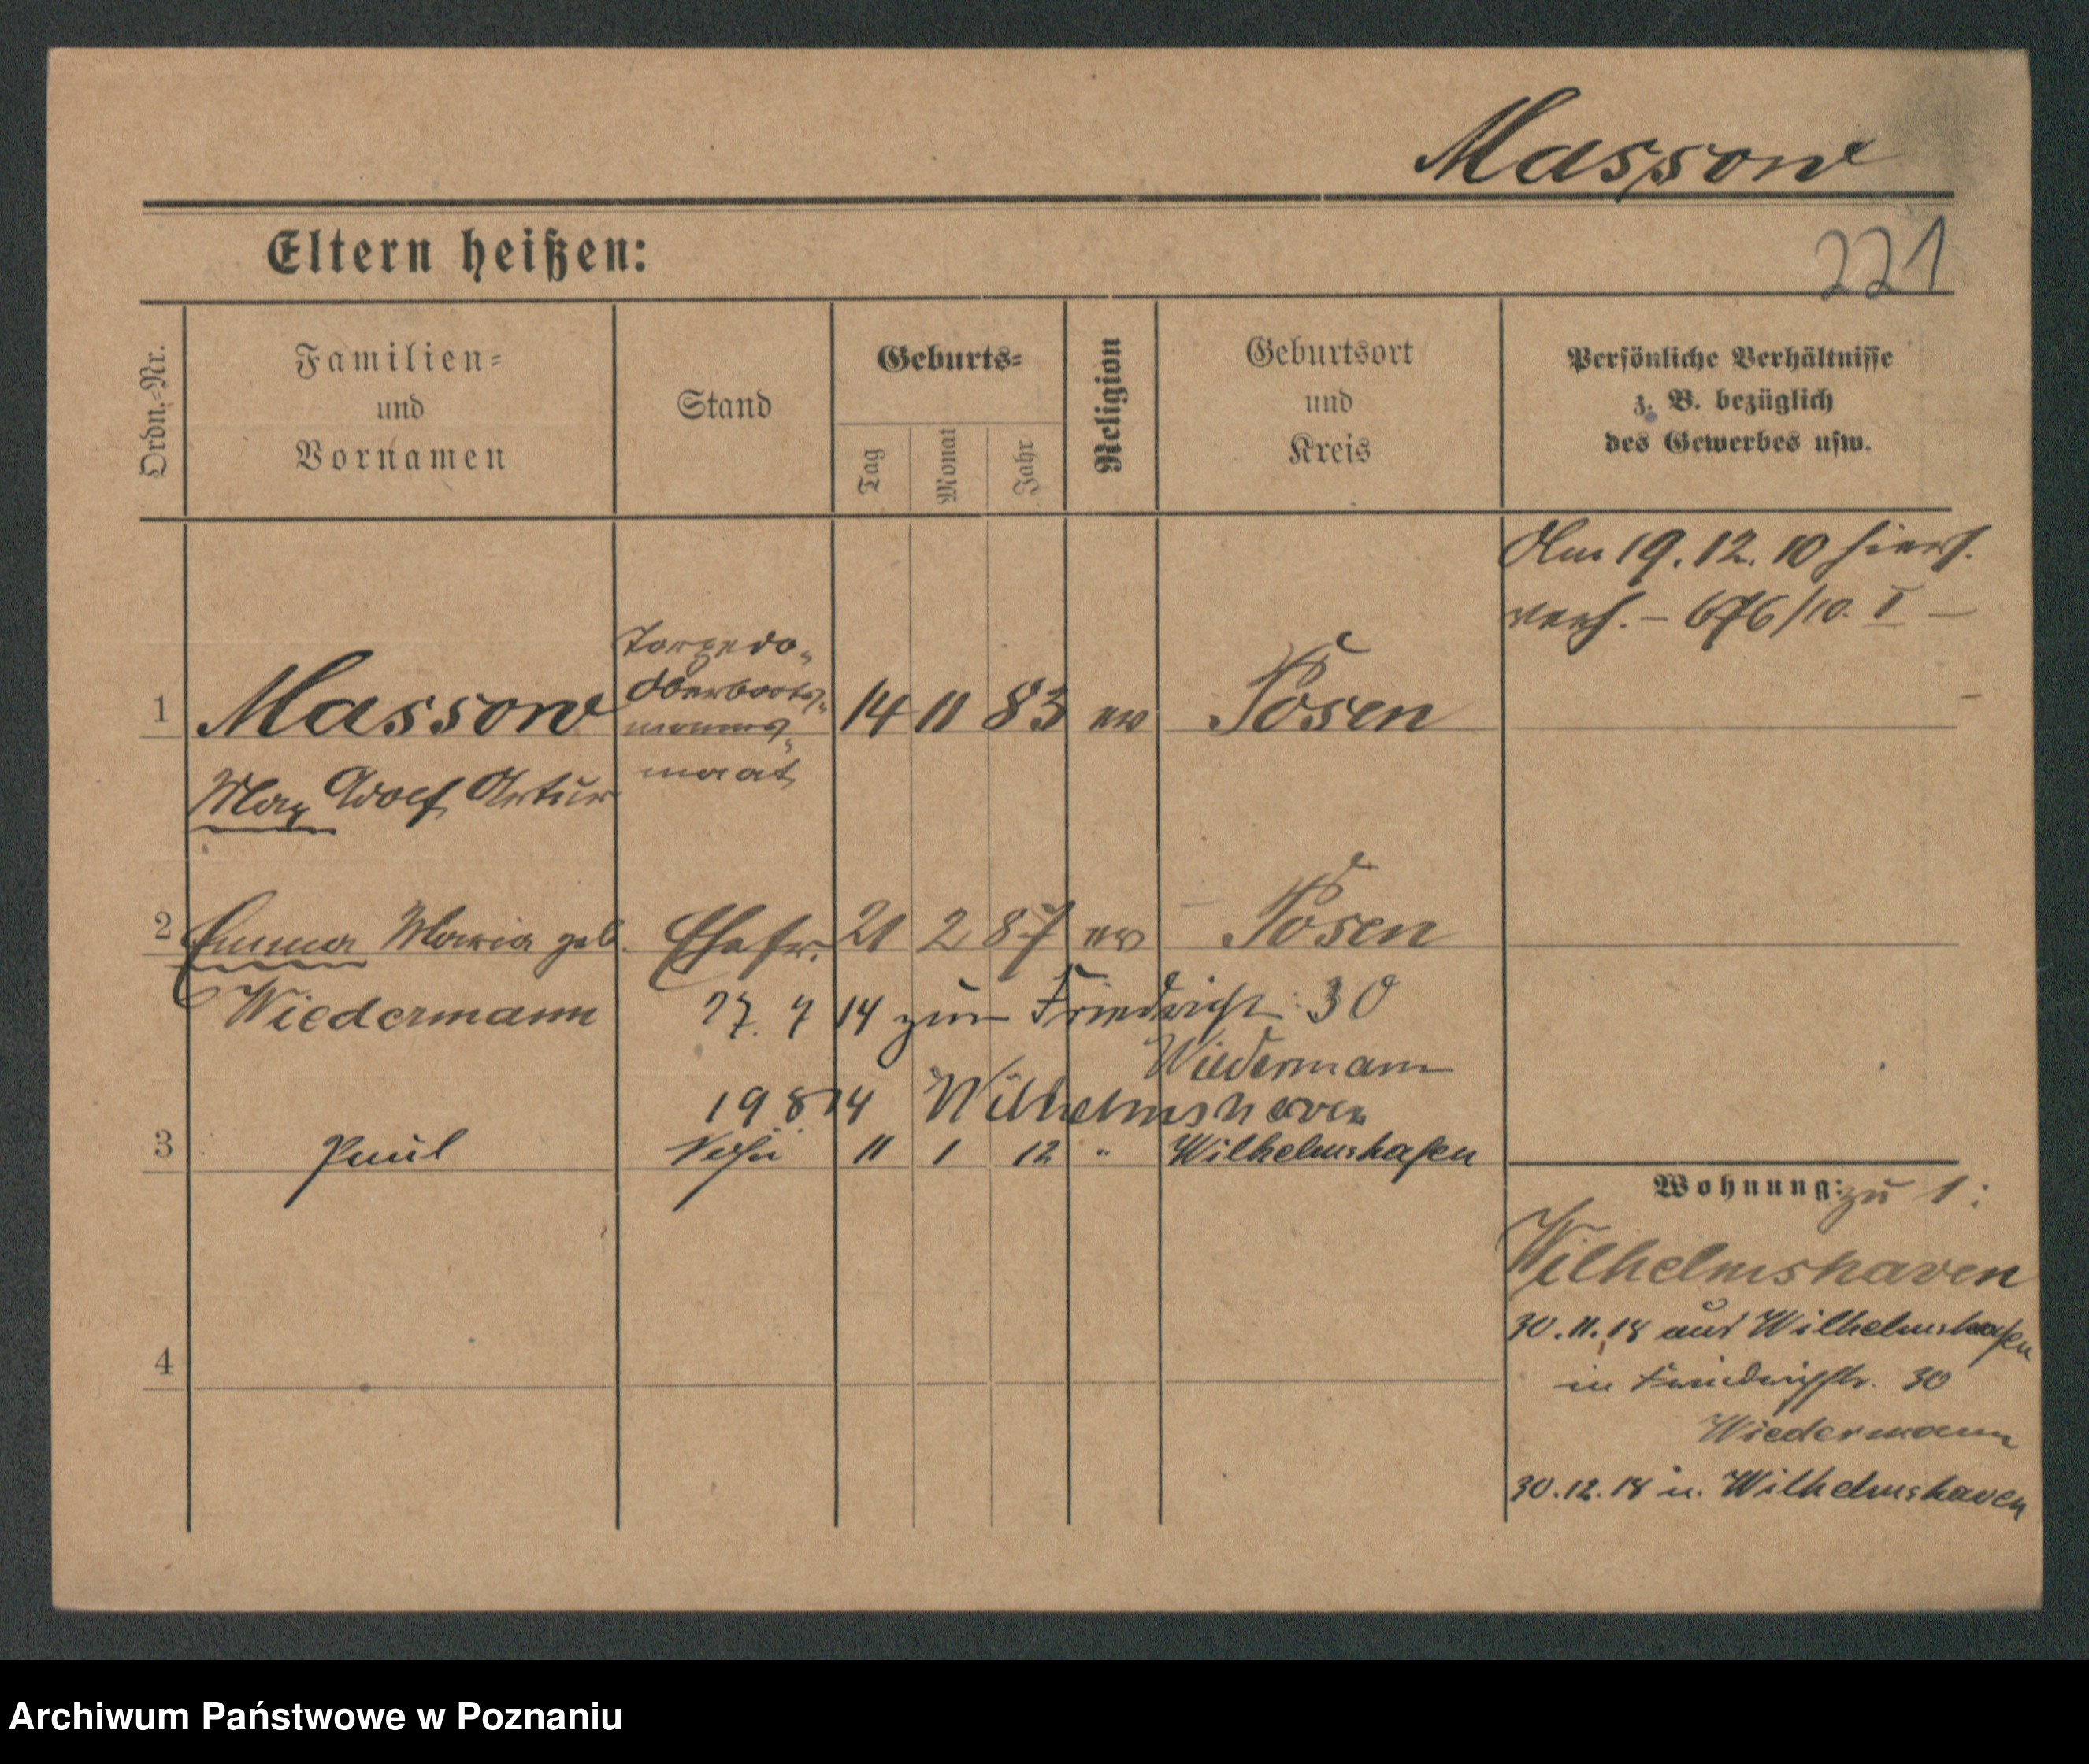 Massow
Eltern heißen:
221
Ordn.-Nr.
Familien-
und
Vornamen
Stand
Geburts-
Tag
Monat
Jahr
Religion
Geburtsort
und
Kreis
Persönliche Verhältnisse
z. B. bezüglich
des Gewerbes usw.
Am 19. 12. 10 hiers.
verh. – 676/10. I –
1 Massow
Max Adolf Artur
Torpedo-
Oberboots-
manns-
maat
14 11 83 ev Posen
2 Emma Maria geb. Ehefr. 21 2 87 ev Posen
Wiedermann
27. 7 14 zur Friedrichstr. 30
Wiedermann
19 8 14 Wilhelmshaven
3 Paul 11 1 12 " Wilhelmshafen
4
Wohnung: zu 1:
Wilhelmshaven
30. 11. 18 aus Wilhelmshafen
in Friedrichstr. 30
Wiedermann
30. 12. 18 n. Wilhelmshaven
Archiwum Państwowe w Poznaniu